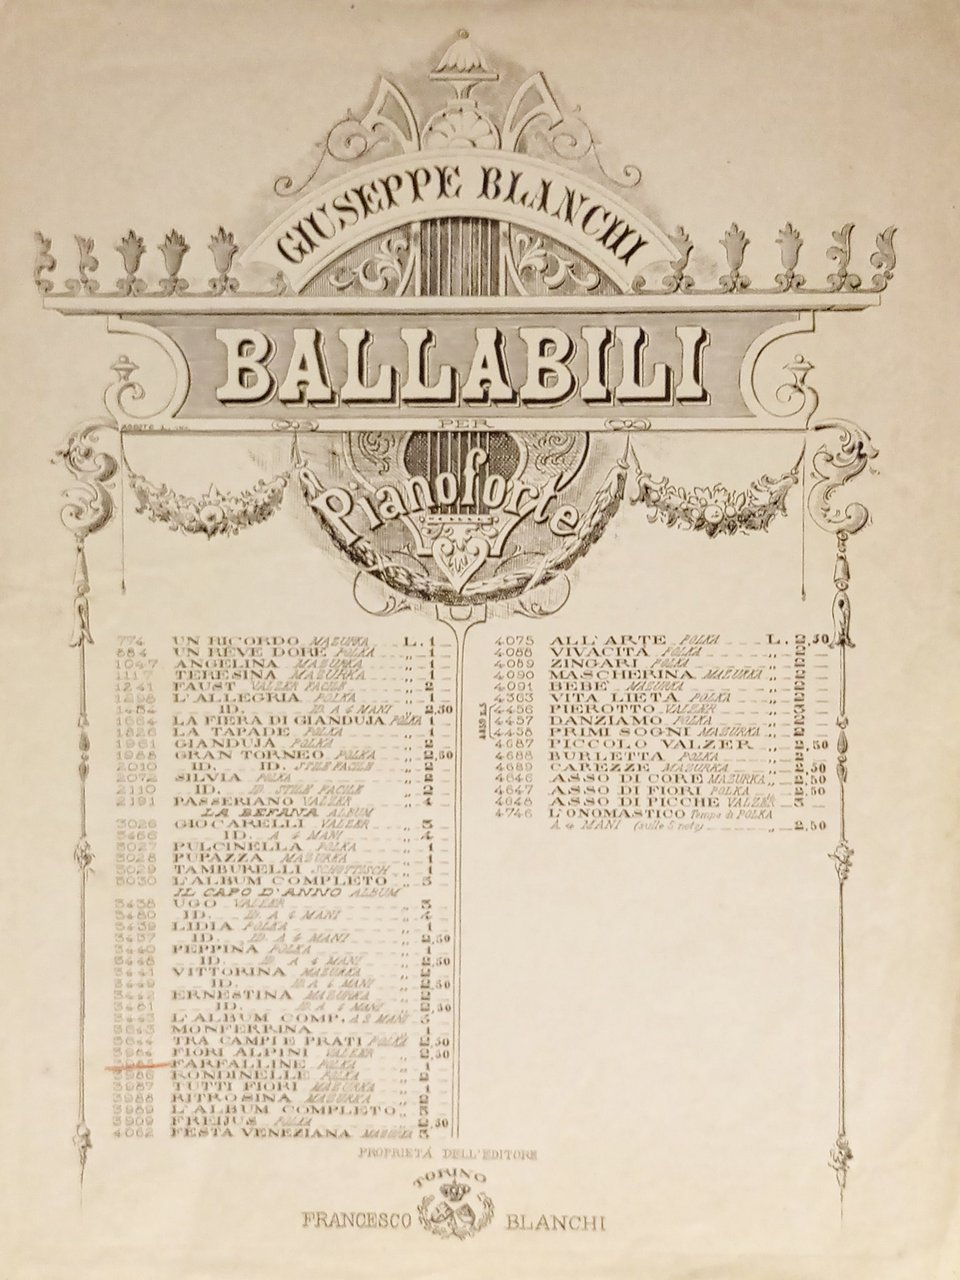 GIUSEPPE BLANCHI
BALLABILI
PER
Pianoforte
774 UN RICORDO MAZURKA L. 1
884 UN RÊVE DORÉ POLKA „ 1
1047 ANGELINA MAZURKA „ 1
1117 TERESINA MAZURKA „ 1
1241 FAUST VALZER FACILE „ 2
L'ALLEGRIA POLKA „ 1
ID. ID. A 4 MANI „ 2,50
1684 LA FIERA DI GIANDUJA POLKA 1
1826 LA TAPADE POLKA „ 1
1961 GIANDUJA POLKA „ 2
1988 GRAN TORNEO POLKA „ 2,50
2010 ID. ID. STILE FACILE „ 2
2072 SILVIA POLKA „ 2
2110 ID. ID. STILE FACILE „ 2
2191 PASSERIANO VALZER „ 4
LA BEFANA ALBUM
3026 GIOCARELLI VALZER „ 3
3466 ID. A 4 MANI „ 4
3027 PULCINELLA POLKA „ 1
3028 PUPAZZA MAZURKA „ 1
3029 TAMBURELLI SCHOTTISCH „ 1
3030 L'ALBUM COMPLETO „ 5
IL CAPO D'ANNO ALBUM
3438 UGO VALZER „ 3
3480 ID. ID. A 4 MANI „ 4
3439 LIDIA POLKA „ 1
3437 ID. ID. A 4 MANI „ 2,50
3440 PEPPINA POLKA „ 1
3448 ID. ID. A 4 MANI „ 2,50
3441 VITTORINA MAZURKA „ 2
3449 ID. ID. A 4 MANI „ 2,50
3442 ERNESTINA MAZURKA „ 2
3481 ID. ID. A 4 MANI „ 2,50
3443 L'ALBUM COMP. A 2 MANI „ 5
3643 MONFERRINA 1
3644 TRA CAMPI E PRATI POLKA 2,50
3964 FIORI ALPINI VALZER „ 2,50
3985 FARFALLINE POLKA „ 1
3986 RONDINELLE POLKA „ 1
3987 TUTTI FIORI MAZURKA „ 1
3988 RITROSINA MAZURKA „ 1
3989 L'ALBUM COMPLETO „ 3
3909 FREIJUS POLKA „ 2,50
4062 FESTA VENEZIANA MAZURKA 3
4075 ALL'ARTE POLKA L. 2,50
4088 VIVACITÀ POLKA „ 2
4089 ZINGARI POLKA „ 2
4090 MASCHERINA MAZURKA „ 2
4091 BEBÈ MAZURKA „ 2
4363 VITA LIETA POLKA „ 2
4456 PIEROTTO VALZER „ 3
4457 DANZIAMO POLKA „ 2
4458 PRIMI SOGNI MAZURKA „ 2
4687 PICCOLO VALZER „ 2,50
4688 BURLETTA POLKA „ 2
4689 CAREZZE MAZURKA „ 2,50
4646 ASSO DI CORE MAZURKA „ 2,50
4647 ASSO DI FIORI POLKA „ 2,50
4648 ASSO DI PICCHE VALZER „ 3
4746 L'ONOMASTICO Tempo di POLKA
A 4 MANI (sulle 5 note) „ 2,50
PROPRIETÀ DELL'EDITORE
TORINO
FRANCESCO BLANCHI